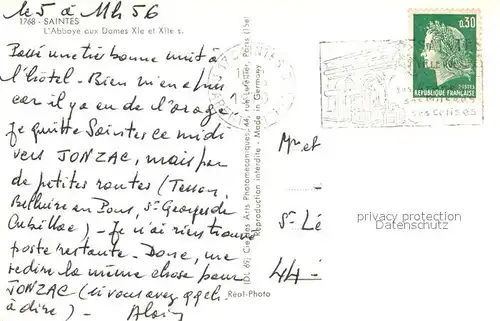 le 5 à 11h 56
1768 - SAINTES
L'Abbaye aux Dames XIe et XIIe s.
Passé une très bonne nuit à
l'hôtel. Bien m'en a pris
car il y a eu de l'orage.
Je quitte Saintes ce midi
vers JONZAC, mais par
de petites routes (Tesson,
en Pons, St Georges de
) - Je n'ai rien trouvé
poste restante. Donc, me
redire la même chose pour
JONZAC (si vous avez qqch.
à dire). Alain
Réal-Photo
(DL 69) Cie des Arts Photomécaniques, 44, rue Letellier, Paris (15e)
Reproduction interdite - Made in Germany
0,30
POSTES
RÉPUBLIQUE FRANÇAISE
SAINTES
Mr et
St Lé
44 -
privacy protection
Datenschutz